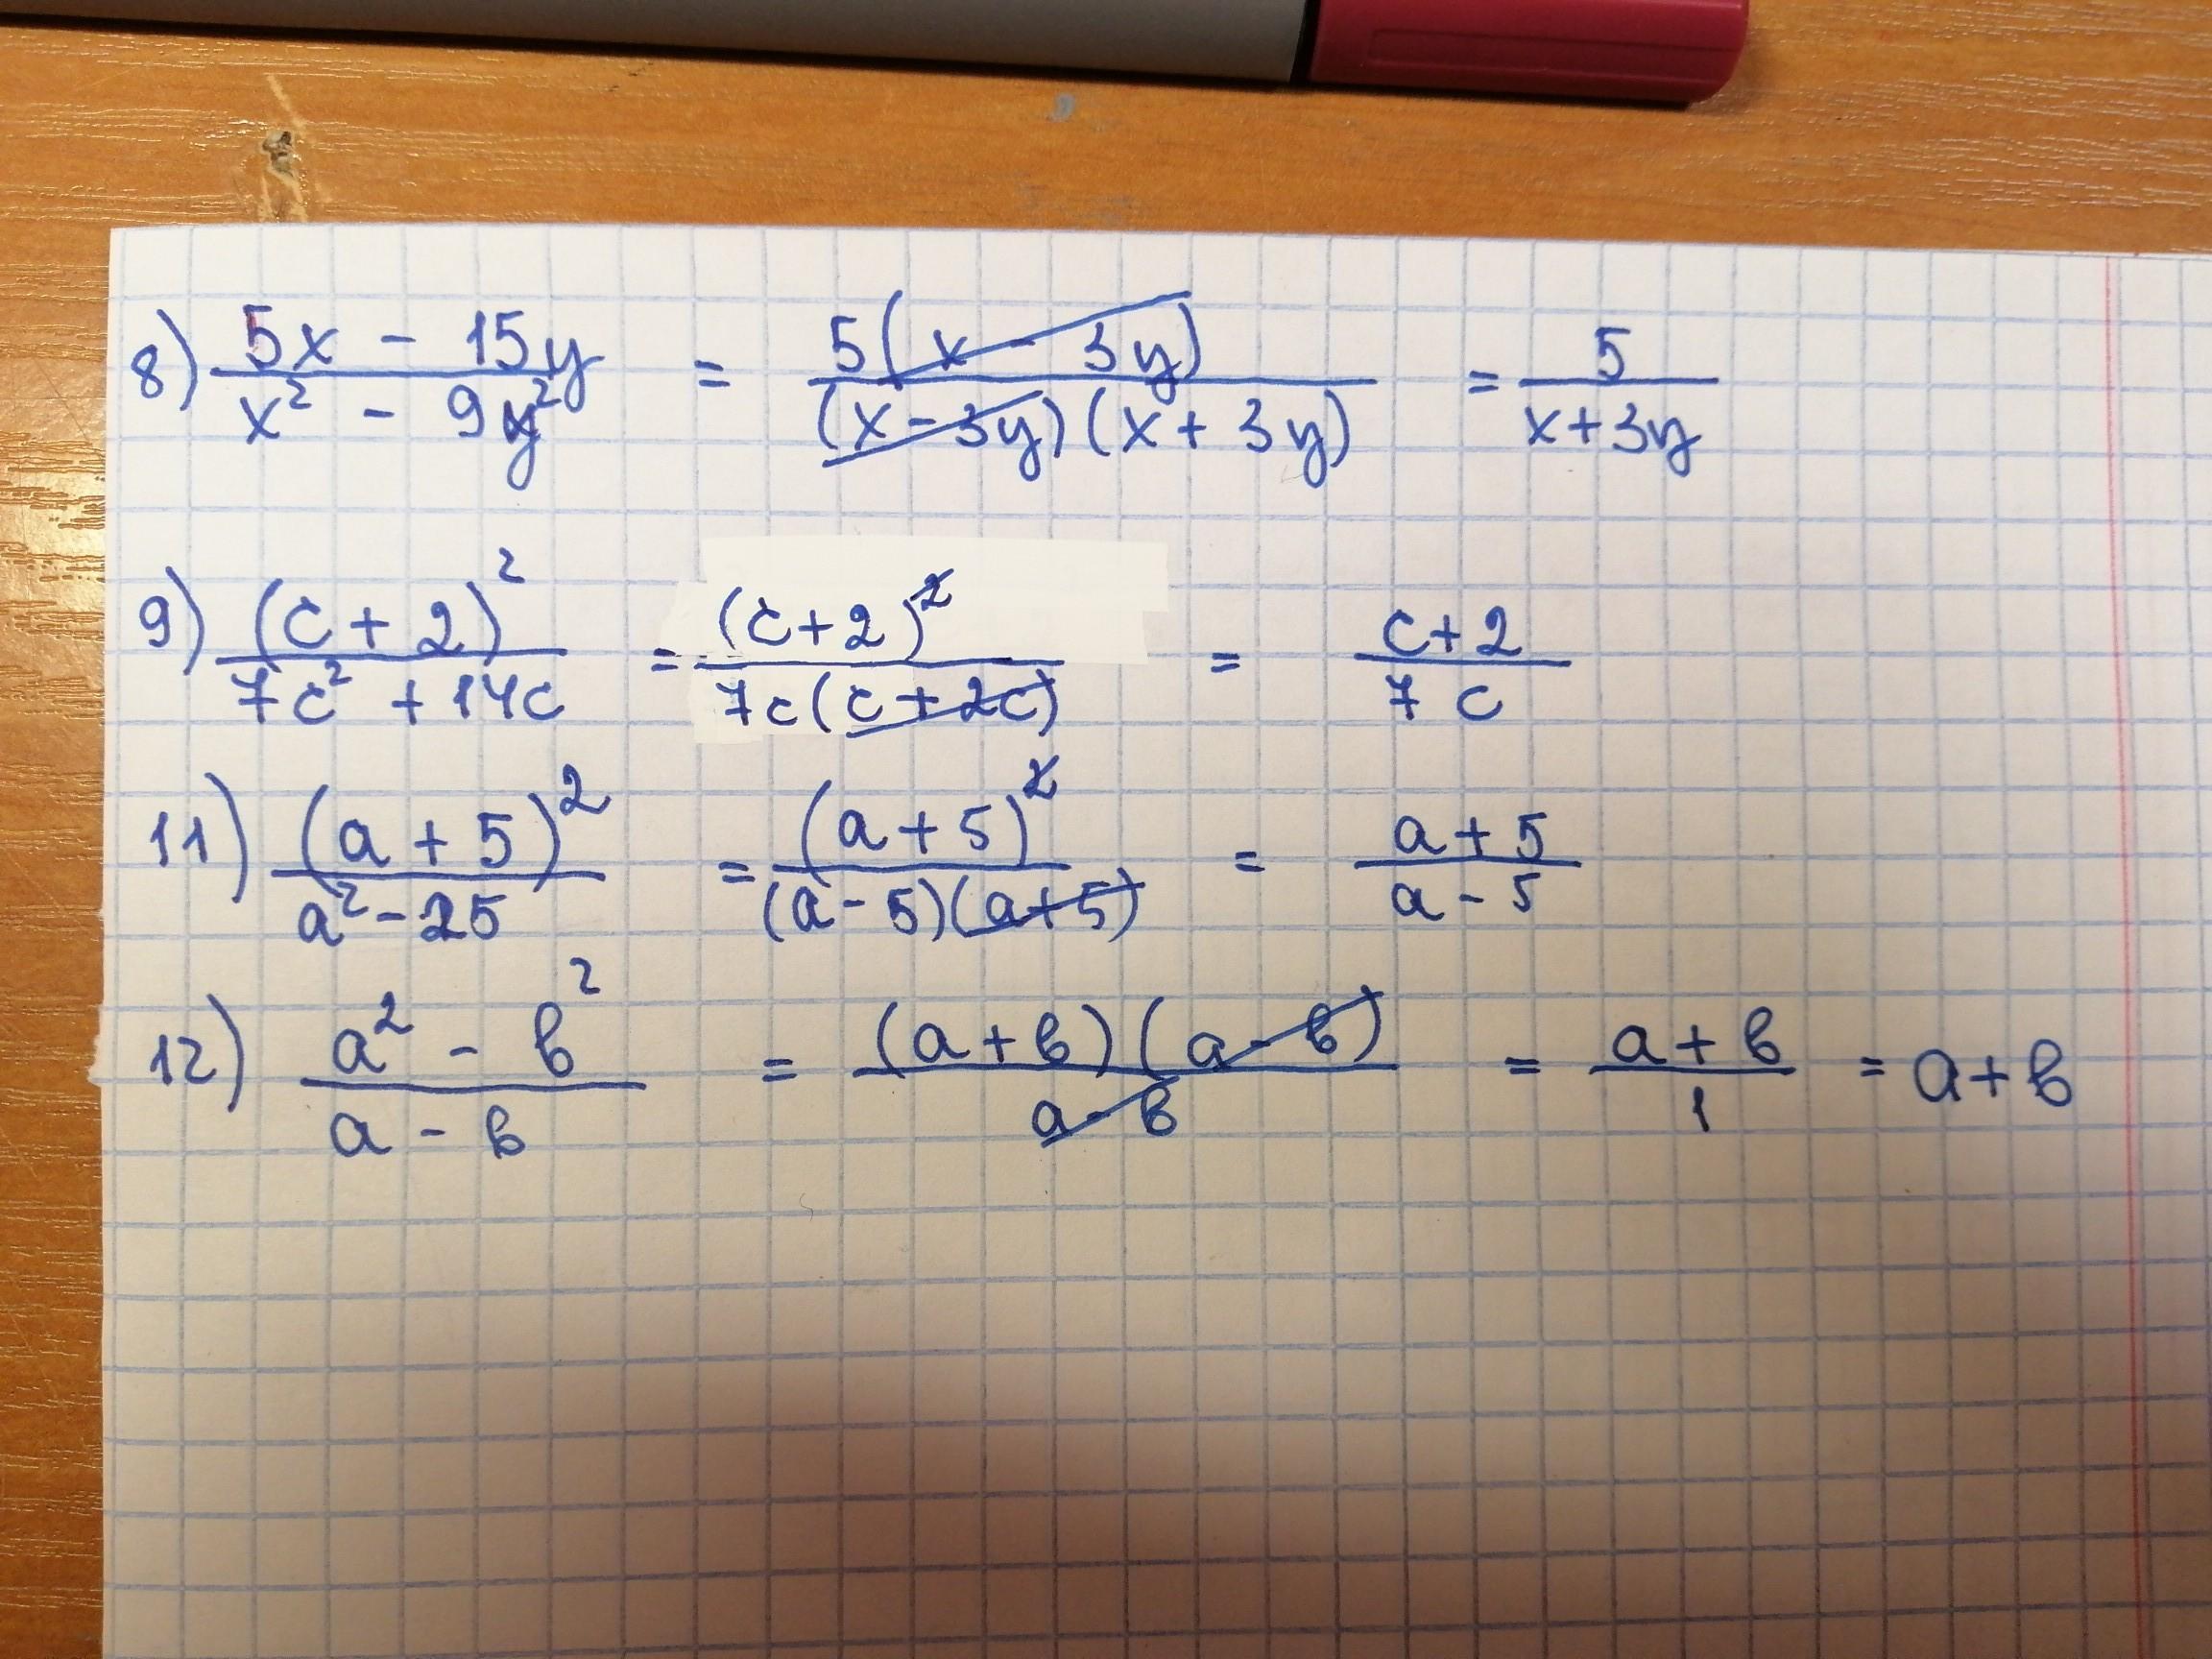 8) (5x - 15y)/(x² - 9y²) = 5(x - 3y)/((x - 3y)(x + 3y)) = 5/(x+3y)
9) (c + 2)²/(7c² + 14c) = (c+2)²/(7c(c+2c)) = (c+2)/(7c)
11) (a + 5)²/(a² - 25) = (a + 5)²/((a - 5)(a+5)) = (a + 5)/(a - 5)
12) (a² - b²)/(a - b) = (a + b)(a - b)/(a - b) = (a + b)/1 = a + b